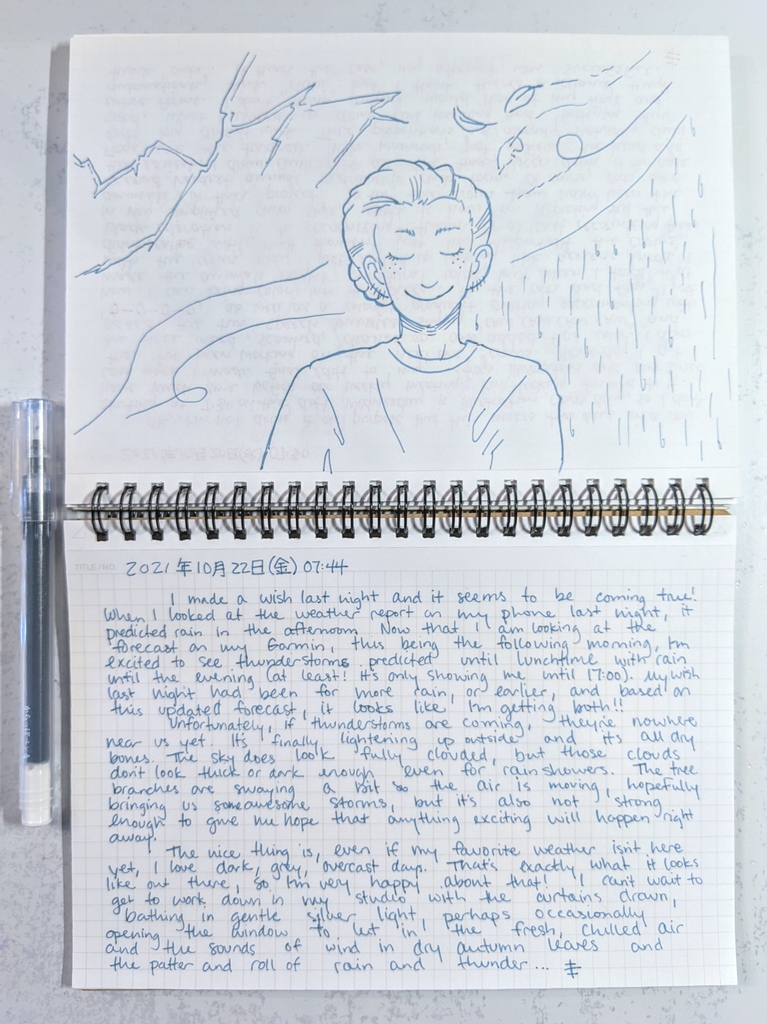 TITLE/NO.
2021年10月22日(金) 07:44
I made a wish last night and it seems to be coming true!
When I looked at the weather report on my phone last night, it
predicted rain in the afternoon. Now that I am looking at the
forecast on my Garmin, this being the following morning, I'm
excited to see thunderstorms predicted until lunchtime with rain
until the evening (at least! It's only showing me until 17:00). My wish
last night had been for more rain, or earlier, and based on
this updated forecast, it looks like I'm getting both!!
Unfortunately, if thunderstorms are coming, they're nowhere
near us yet. It's finally lightening up outside and it's all dry
bones. The sky does look fully clouded, but those clouds
don't look thick or dark enough even for rain showers. The tree
branches are swaying a bit so the air is moving, hopefully
bringing us some awesome storms, but it's also not strong
enough to give me hope that anything exciting will happen right
away.
The nice thing is, even if my favorite weather isn't here
yet, I love dark, grey, overcast days. That's exactly what it looks
like out there, so I'm very happy about that! I can't wait to
get to work down in my studio with the curtains drawn,
bathing in gentle silver light, perhaps occasionally
opening the window to let in the fresh, chilled air
and the sounds of wind in dry autumn leaves and
the patter and roll of rain and thunder...